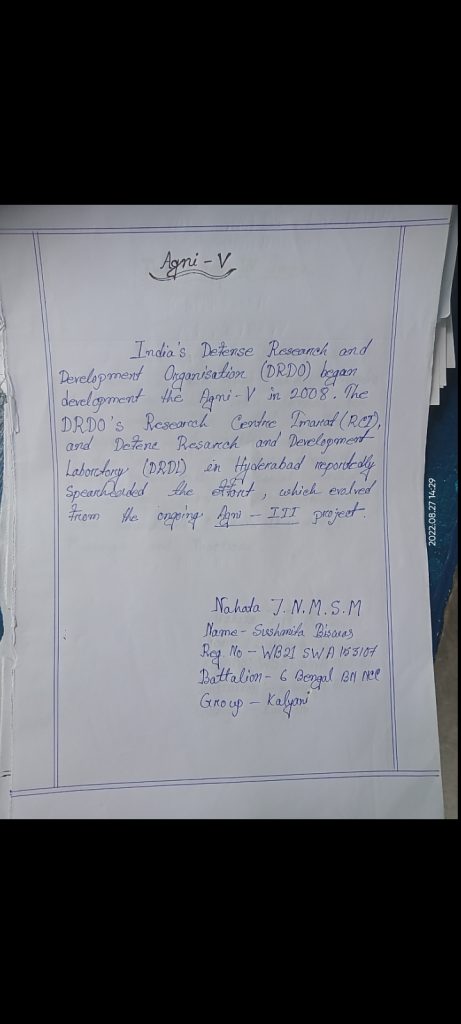 Agni - V
India's Defense Research and
Development Organisation (DRDO) began
development the Agni-V in 2008. The
DRDO's Research Centre Imarat (RCI),
and Defene Resarch and Development
Laborctory (DRDL) in Hyderabad reportedly
Spearheaded the effort, which evalved
From the ongoing Agni - III project.
Nahata J.N.M.S.M
Name - Sushmita Biswas
Reg. No - WB21 SWA 163107
Battalion - 6 Bengal BN NCC
Group - Kalyani
2022.08.27 14:29